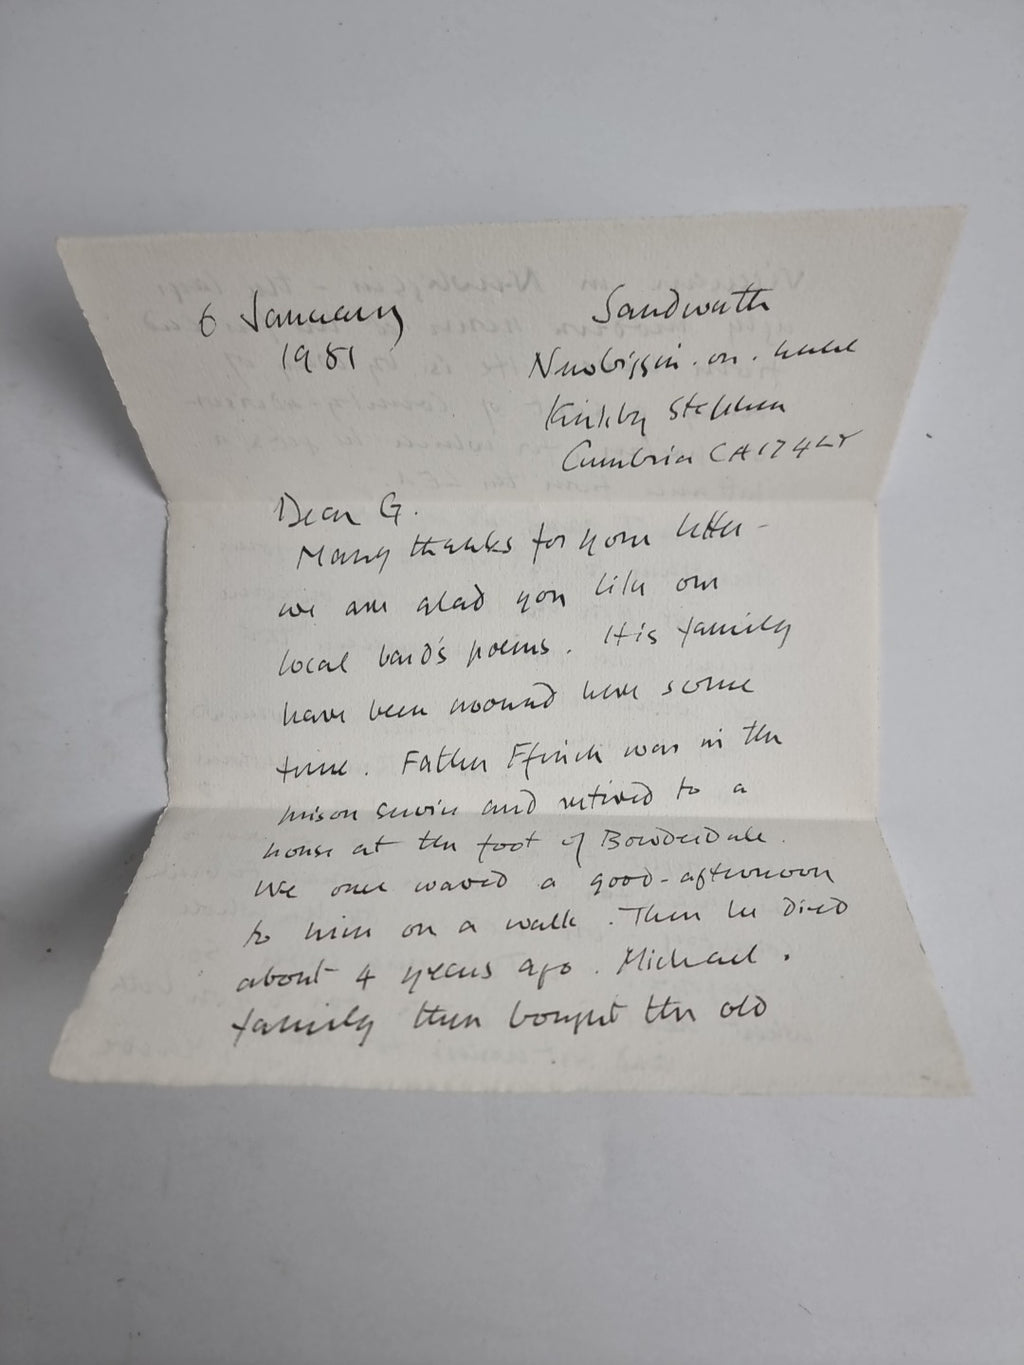 6 January
1981
Sandwath
Newbiggin-on-Lune
Kirkby Stephen
Cumbria CA17 4LY
Dear G.
Many thanks for your letter -
we are glad you like our
local bard's poems. His family
have been around here some
time. Father Ffinch was in the
prison service and retired to a
house at the foot of Bowderdale.
We once waved a good-afternoon
to him on a walk. Then he died
about 4 years ago. Michael.
family then bought the old